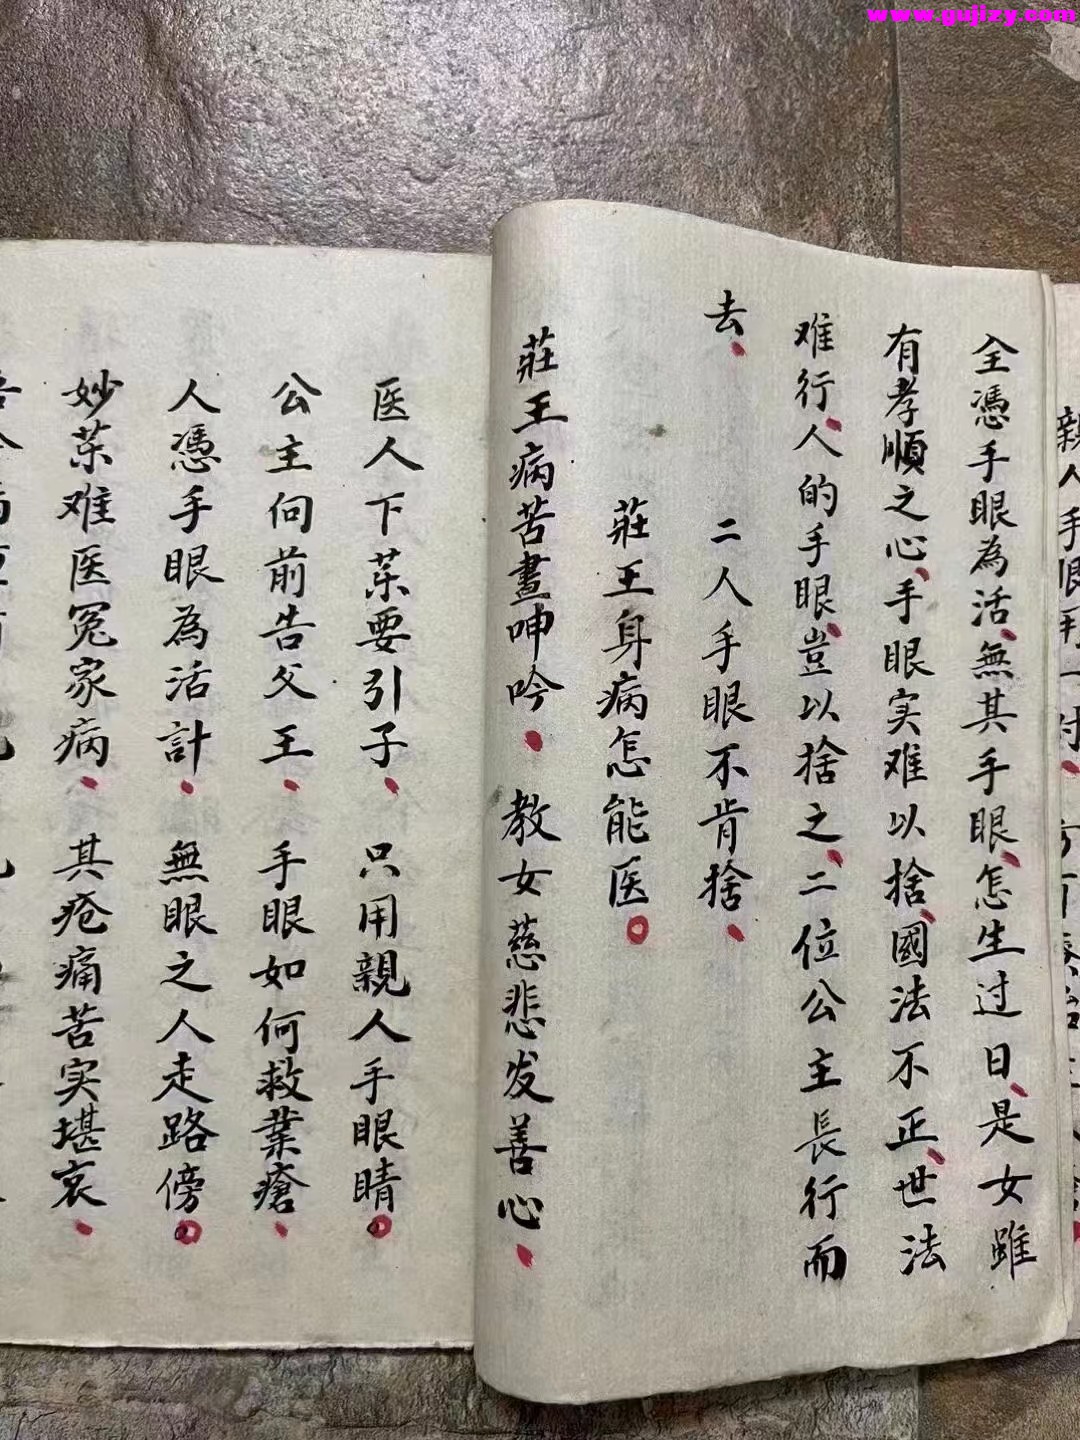 www.gujizy.com
親人手眼
全憑手眼為活、無其手眼、怎生过日、是女雖
有孝順之心、手眼实难以捨、國法不正、世法
难行、人的手眼、豈以捨之、二位公主長行而
去、
二人手眼不肯捨、
莊王身病怎能医。
莊王病苦晝呻吟、教女慈悲发善心、
医人下茶要引子、只用親人手眼睛。
公主向前告父王、手眼如何救業瘡、
人憑手眼為活計、無眼之人走路傍。
妙茶难医冤家病、其疮痛苦实堪哀、